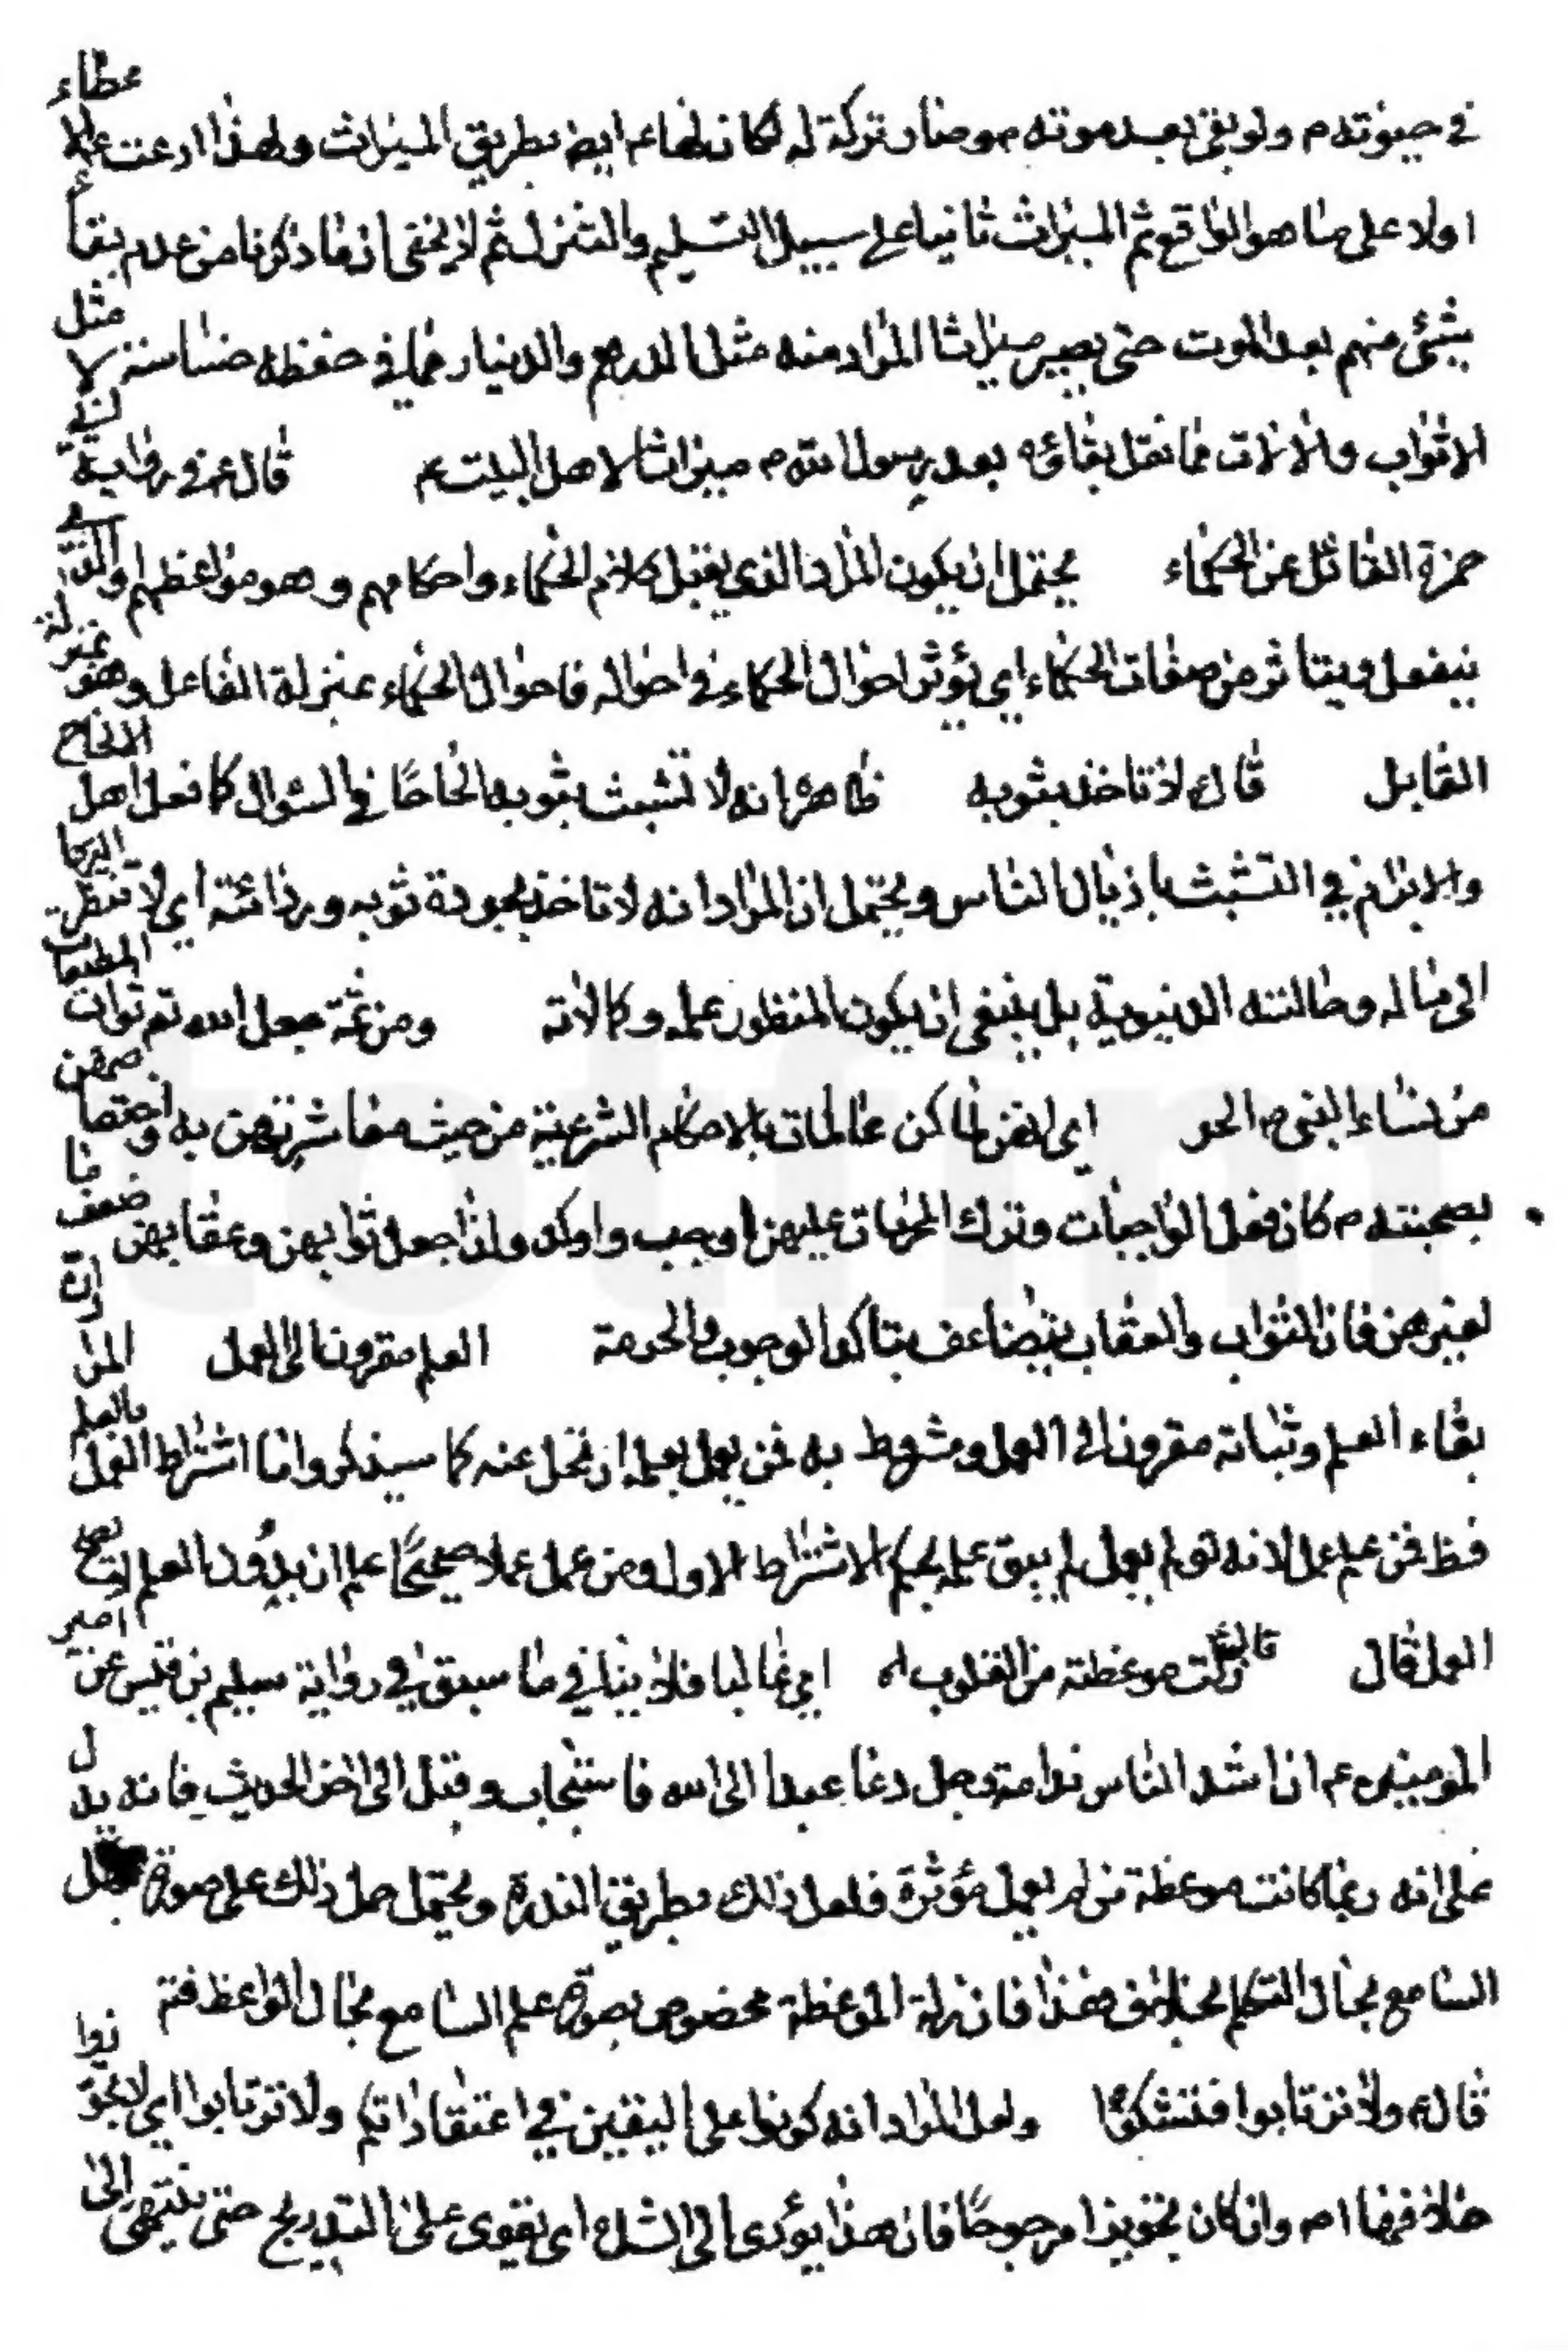 في حيوته م ولو بقي بعد موته م وصار تركة له لكان لها ع ايض بطريق الميراث ولهذا ادعت ع عطاء
اولا على ما هو الواقع ثم الميراث ثانيا على سبيل التسليم والتنزل ثم لا يخفى ان ما ذكرنا من عدم بقاء
شئ منهم بعد الموت حتى يصير ميراثا المراد منه مثل الدرهم والدنيار مما في حفظه خساسة لا مثل
الاثواب والالات مما نقل بقاؤه بعد رسول الله م ميراثا لاهل البيت ع قال ع في رواية
حمزة القائل عن الحكماء يحتمل ان يكون المراد الذي يقبل كلام الحكماء واحكامهم وهو مواعظهم والذي
ينفعل ويتاثر من صفات الحكماء اي يؤثر احوال الحكماء في احواله فاحوال الحكماء بمنزلة الفاعل وهو بمنزلة
القابل قال ع لا تاخذ بثوبه ظاهره انه لا تشبث بثوبه الحاحا في السؤال كما فعل اهل الالحاح
والابرام في التشبث باذيال الناس ويحتمل ان المراد انه لا تاخذ بجودة ثوبه وردائته اي لا تنظر
الى ماله وحالته الدنيوية بل ينبغي ان يكون المنظور علمه وكمالاته ومن ثمة جعل الله تع ثواب المطيعات
من نساء النبي م الحر اي لانهن لما كن عالمات بالاحكام الشرعية من حيث معاشرتهن به واختصاصهن
بصحبته م كان فعل الواجبات وترك المحرمات عليهن اوجب واوكد ولذا جعل ثوابهن وعقابهن ضعف ما
لغيرهن فان الثواب والعقاب يتضاعف بتاكد الوجوب والحرمة العلم مقرونا الى العمل المراد ان
بقاء العلم وثباته مقرون الى العمل ومشروط به فمن يعمل بعلمه ارتحل عنه كما سيذكر واما اشتراط العمل بالعلم
فظ فمن علم عمل لانه لو لم يعمل لم يبق علمه بحكم الاشتراط الاول ومن عمل عملا صحيحا علم ان بدون العلم لا يصح
العمل قال قال ع زلت موعظته من القلوب اه اي غالبا فلا ينافي ما سبق في رواية سليم بن قيس عن امير
المومنين ع ان اشد الناس ندامة رجل دعا عبدا الى الله فاستجاب وقبل الى اخر الحديث فانه يدل
على انه ربما كانت موعظة من لم يعمل مؤثرة فلعل ذلك بطريق الندرة ويحتمل حمل ذلك على صورة جهل
السامع بحال المتكلم بخلاف هذا فان زلة الموعظة مخصوص بصورة علم السامع بحال الواعظ فتم
قال ع ولا ترتابوا فتشكوا ولعل المراد انه كونوا على اليقين في اعتقاداتكم ولا ترتابوا اي لا تجوزوا
خلاف فيها ام وان كان تجويزا مرجوحا فان هذا يؤدي الى الشك اي يقوى على التدريج حتى ينتهى الى